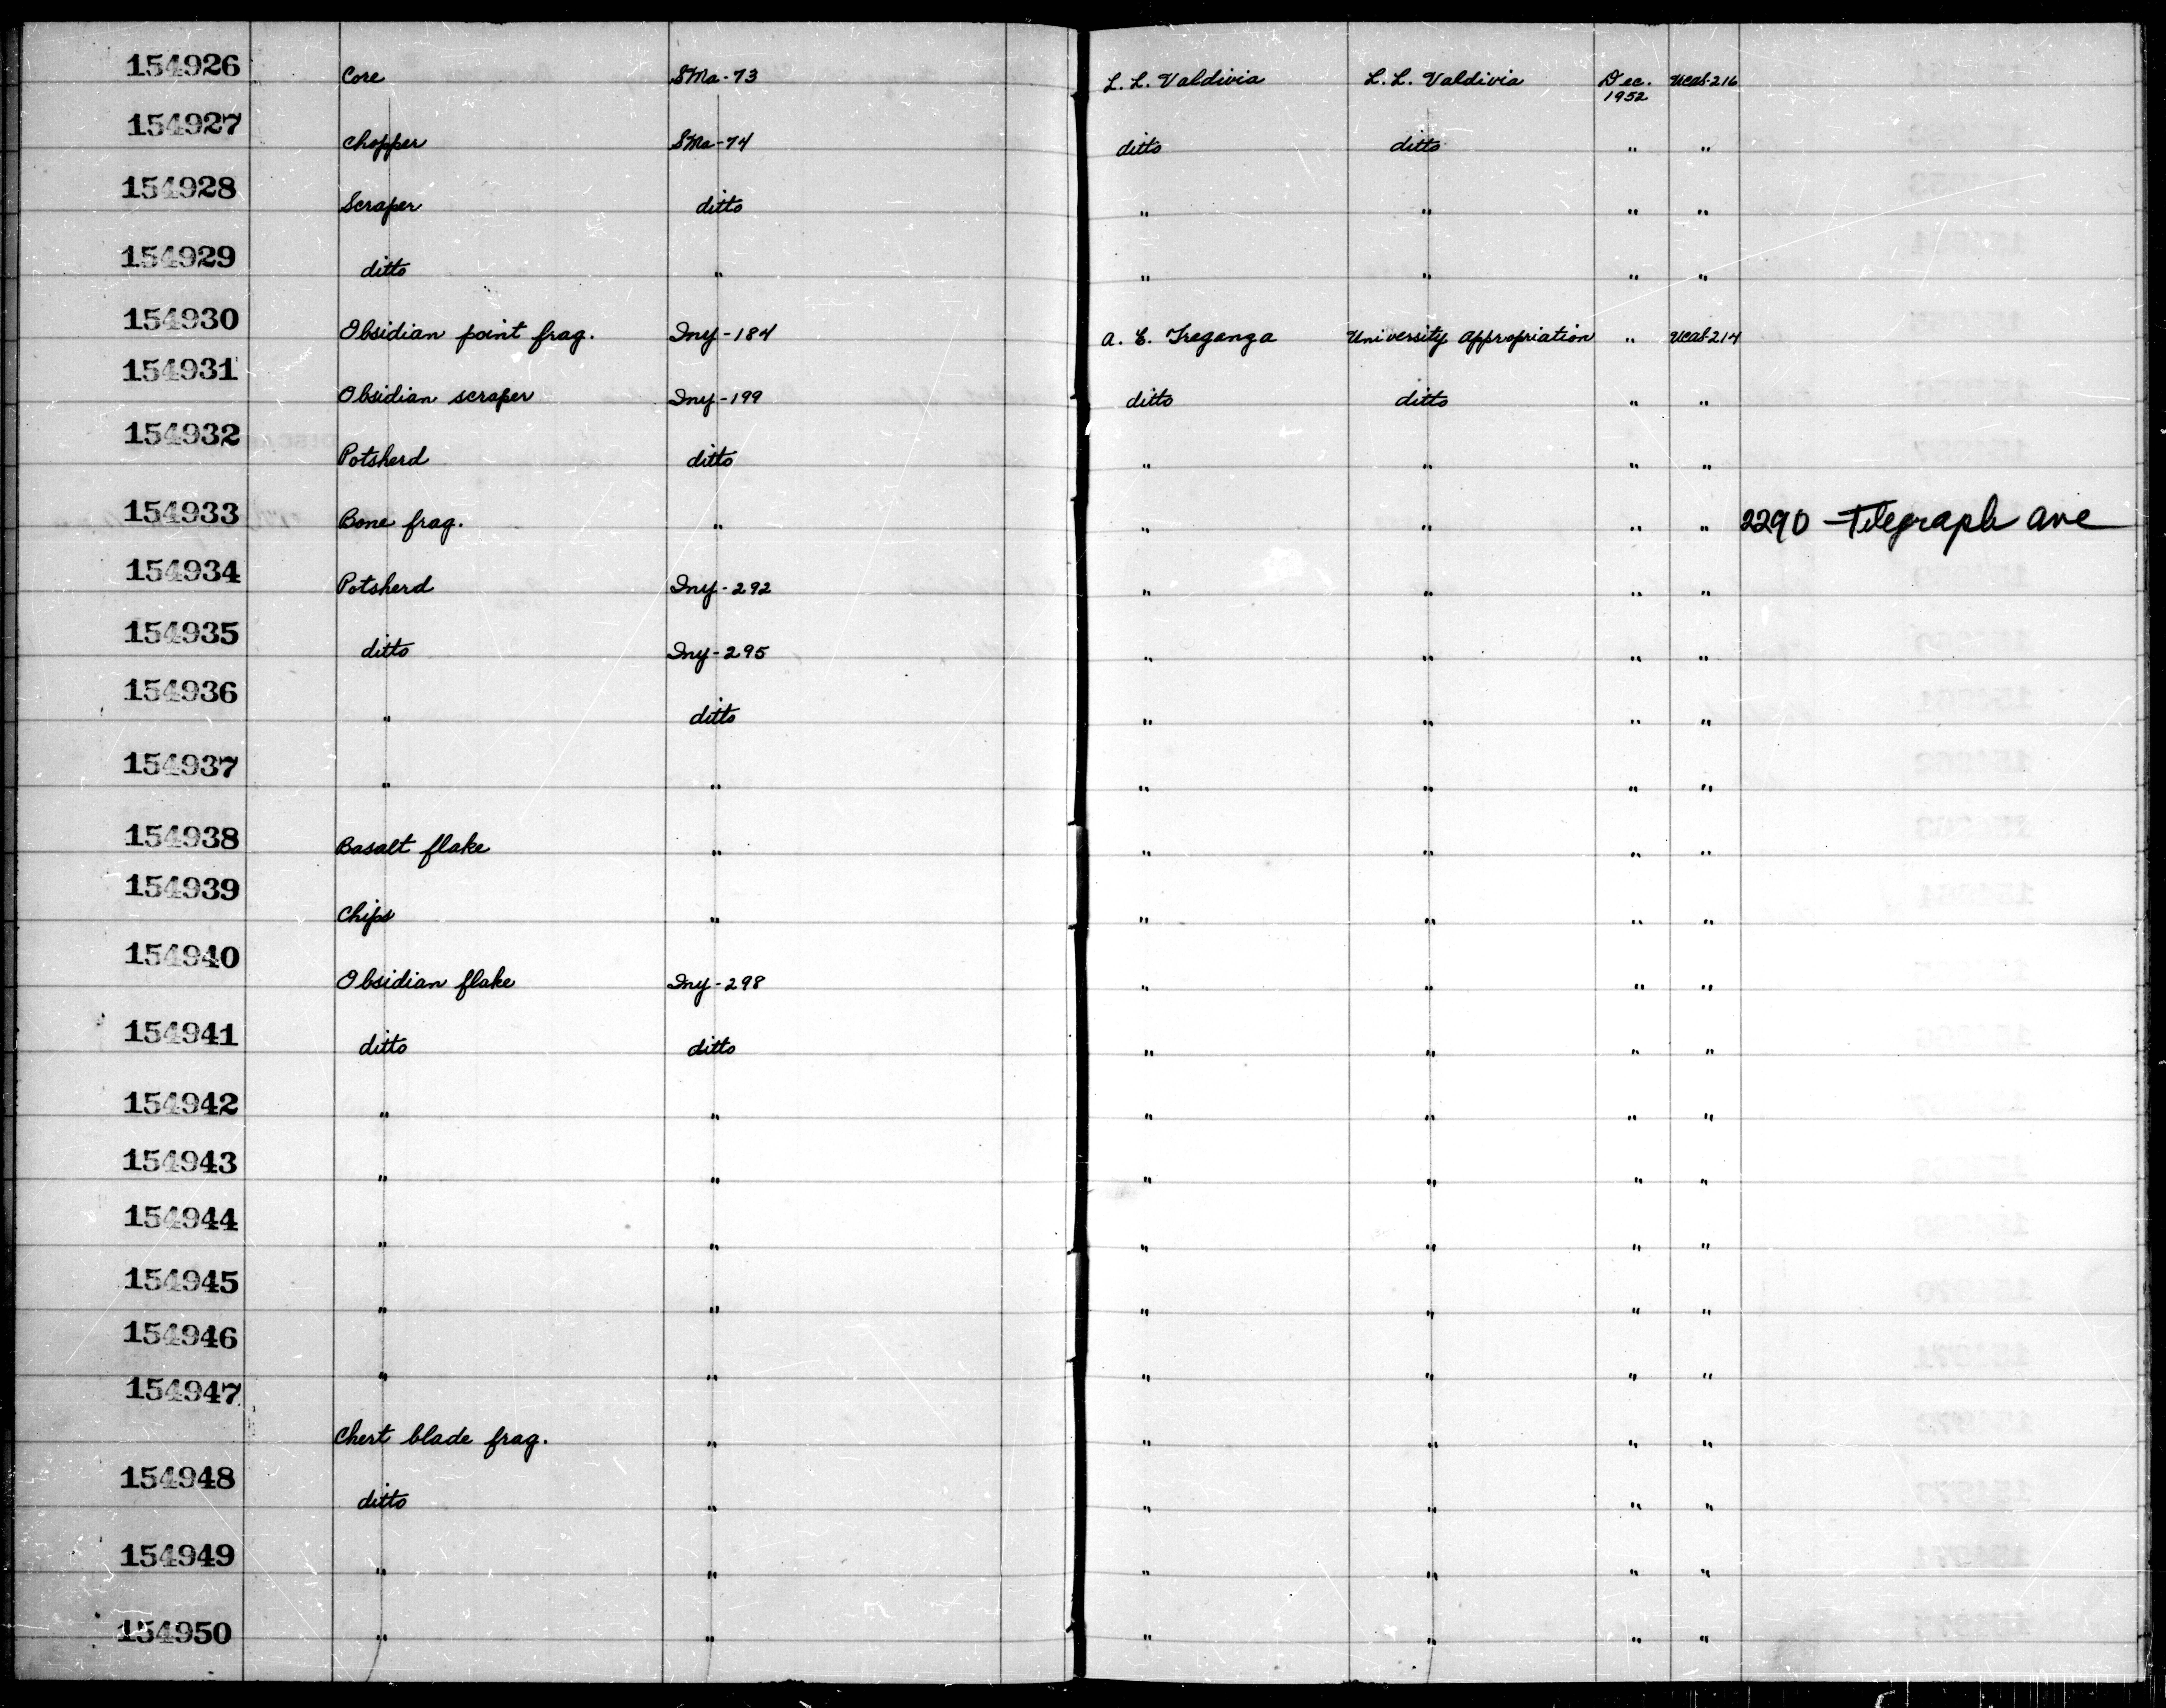 154926 Core SMa-73 L. L. Valdivia L. L. Valdivia Dec. 1952 UCAS-216
154927 Chopper SMa-74 ditto ditto " "
154928 Scraper ditto " " " "
154929 ditto " " " " "
154930 Obsidian point frag. Iny-184 A. E. Treganza University Appropriation " UCAS-214
154931 Obsidian scraper Iny-199 ditto ditto " "
154932 Potsherd ditto " " " "
154933 Bone frag. " " " " " 2290 Telegraph Ave
154934 Potsherd Iny-292 " " " "
154935 ditto Iny-295 " " " "
154936 " ditto " " " "
154937 " " " " " "
154938 Basalt flake " " " " "
154939 Chips " " " " "
154940 Obsidian flake Iny-298 " " " "
154941 ditto ditto " " " "
154942 " " " " " "
154943 " " " " " "
154944 " " " " " "
154945 " " " " " "
154946 " " " " " "
154947 Chert blade frag. " " " " "
154948 ditto " " " " "
154949 " " " " " "
154950 " " " " " "